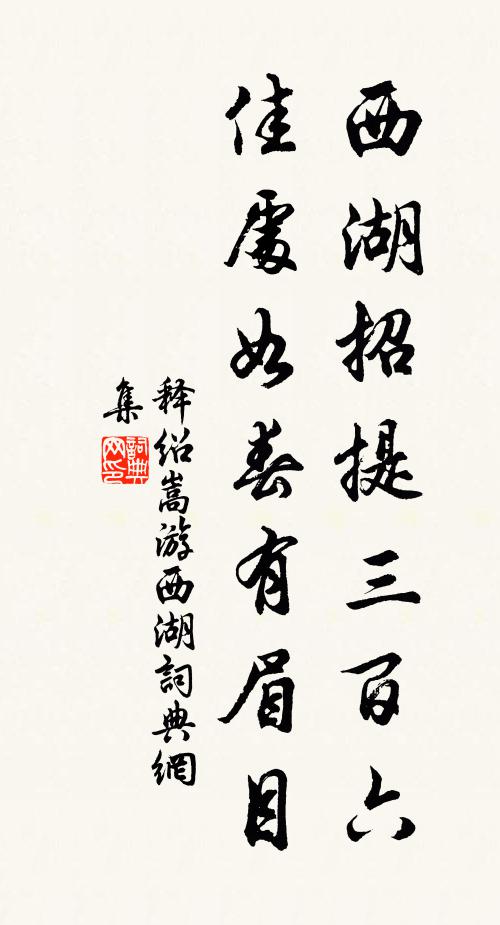 西湖招提三百六
佳處如春有眉目
释绍嵩游西湖詞典網
集
詞典
网印